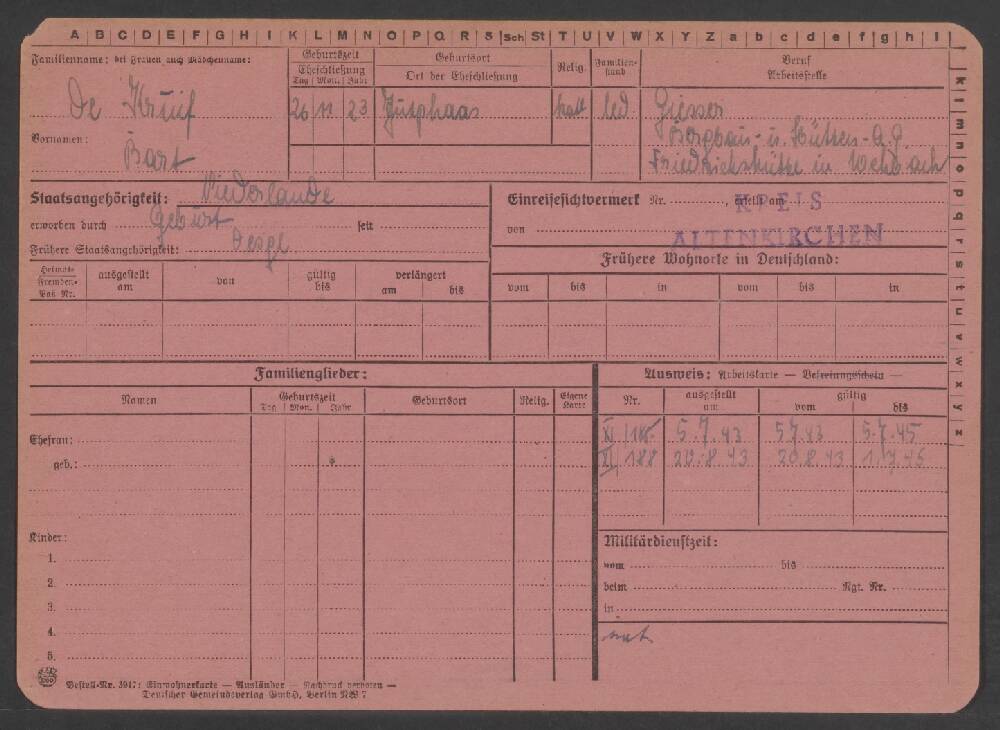 A B C D E F G H I K L M N O P Q R S Sch St T U V W X Y Z a b c d e f g h i
k l m n o p q r s t u v w x y z
Familienname: bei Frauen auch Mädchenname:
Geburtszeit
Eheschließung
Tag Mon. Jahr
Geburtsort
Ort der Eheschließung
Relig.
Familien-
stand
Beruf
Arbeitsstelle
De Kruif
26 11 23
Jutphaas
kath
led
Giesser
Bergbau- u. Hütten-A.G.
Friedrichshütte in Wehbach
Vornamen:
Bart
Staatsangehörigkeit: Niederlande
erworben durch Geburt seit
Frühere Staatsangehörigkeit: desgl
Einreisesichtvermerk Nr. , erteilt am
KREIS
von
ALTENKIRCHEN
Heimats
Fremden-
Paß Nr.
ausgestellt
am
von
gültig
bis
verlängert
am bis
Frühere Wohnorte in Deutschland:
vom bis in vom bis in
Familienglieder:
Namen
Geburtszeit
Tag Mon. Jahr
Geburtsort
Relig.
Eigene
Karte
Ehefrau:
geb.:
Kinder:
1.
2.
3.
4.
5.
Ausweis: Arbeitskarte — Befreiungsschein —
Nr.
ausgestellt
am
gültig
vom bis
XI/185 5.7.43 5.7.43 5.7.45
XI/188 20.8.43 20.8.43
Militärdienstzeit:
vom bis
beim Rgt. Nr.
in
Bestell-Nr. 3917: Einwohnerkarte — Ausländer — Nachdruck verboten —
Deutscher Gemeindeverlag GmbH, Berlin NW 7